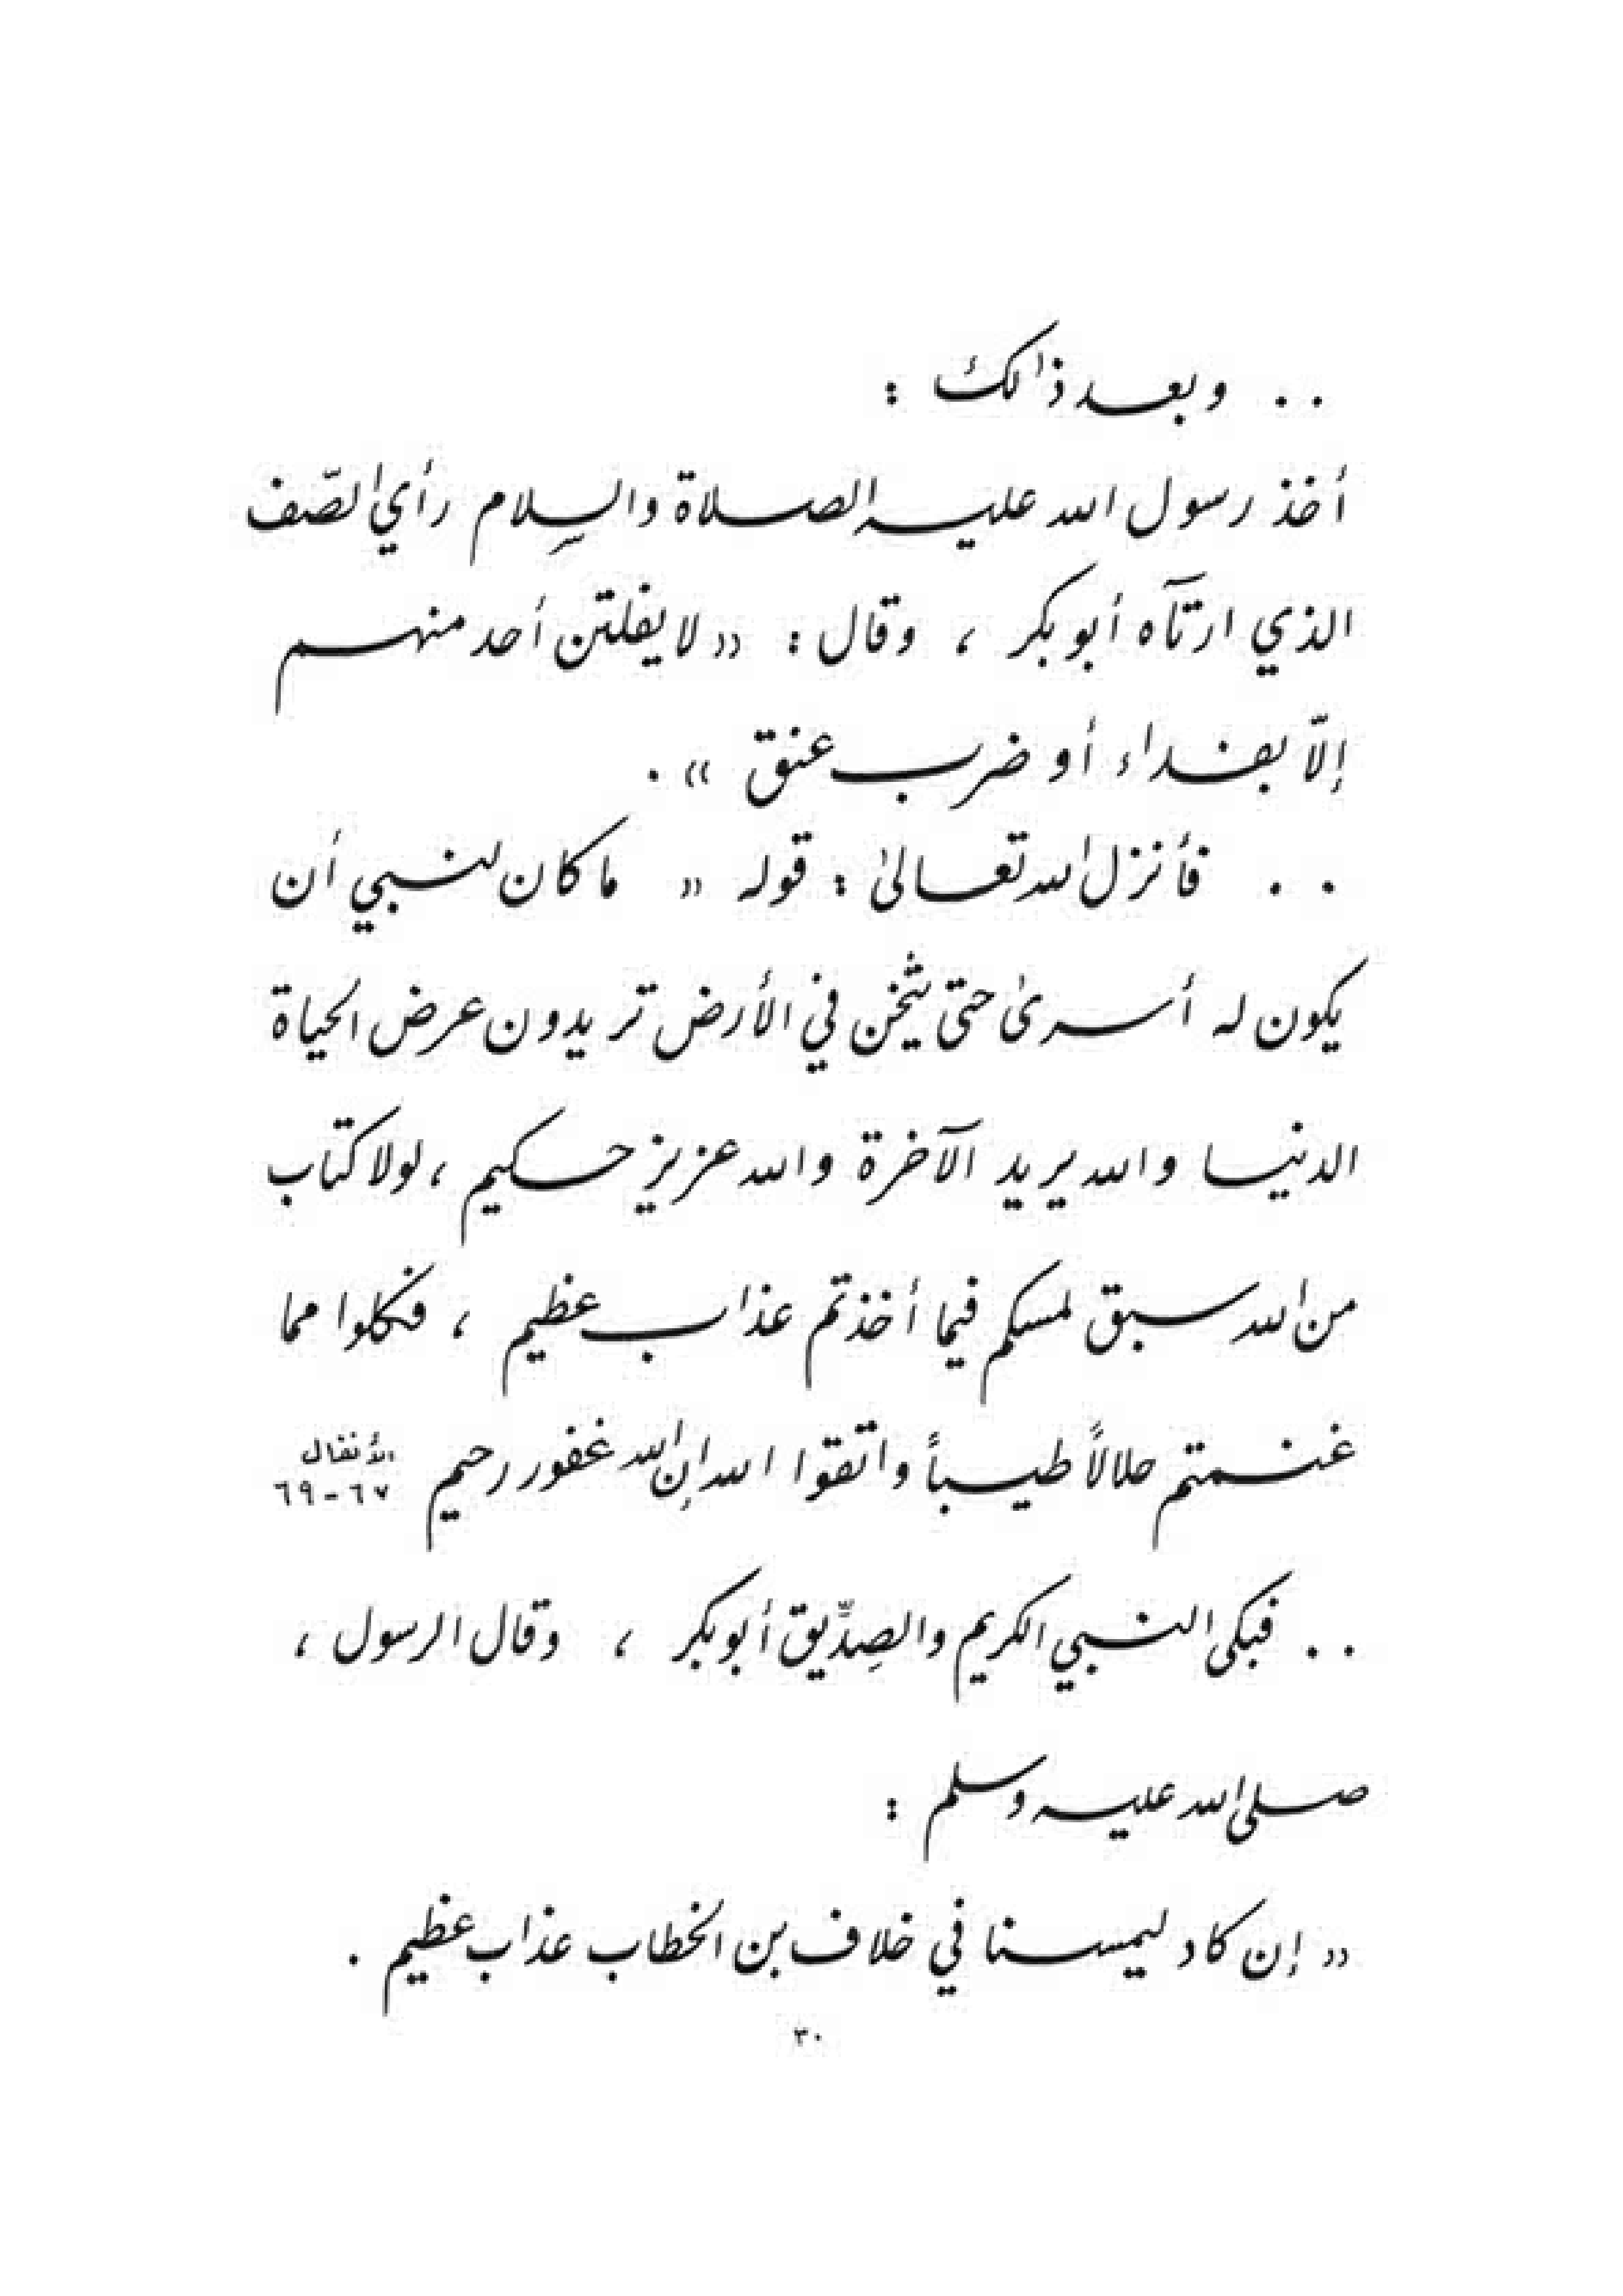 .. وبعد ذالك :
أخذ رسول الله عليه الصلاة والسلام رأي الصّف
الذي ارتآه أبو بكر ، وقال : « لا يفلتن أحد منهم
إلّا بفداء أو ضرب عنق » .
.. فأنزل الله تعالىٰ : قوله « ما كان لنبي أن
يكون له أسرىٰ حتى يثخن في الأرض تريدون عرض الحياة
الدنيا والله يريد الآخرة والله عزيز حكيم ، لولا كتاب
من الله سبق لمسكم فيما أخذتم عذاب عظيم ، فكلوا مما
غنمتم حلالاً طيباً واتقوا الله إن الله غفور رحيم الأنفال ٦٧-٦٩
.. فبكى النبي الكريم والصِدِّيق أبو بكر ، وقال الرسول ،
صلى الله عليه وسلم :
« إن كاد ليمسنا في خلاف بن الخطاب عذاب عظيم .
٣٠